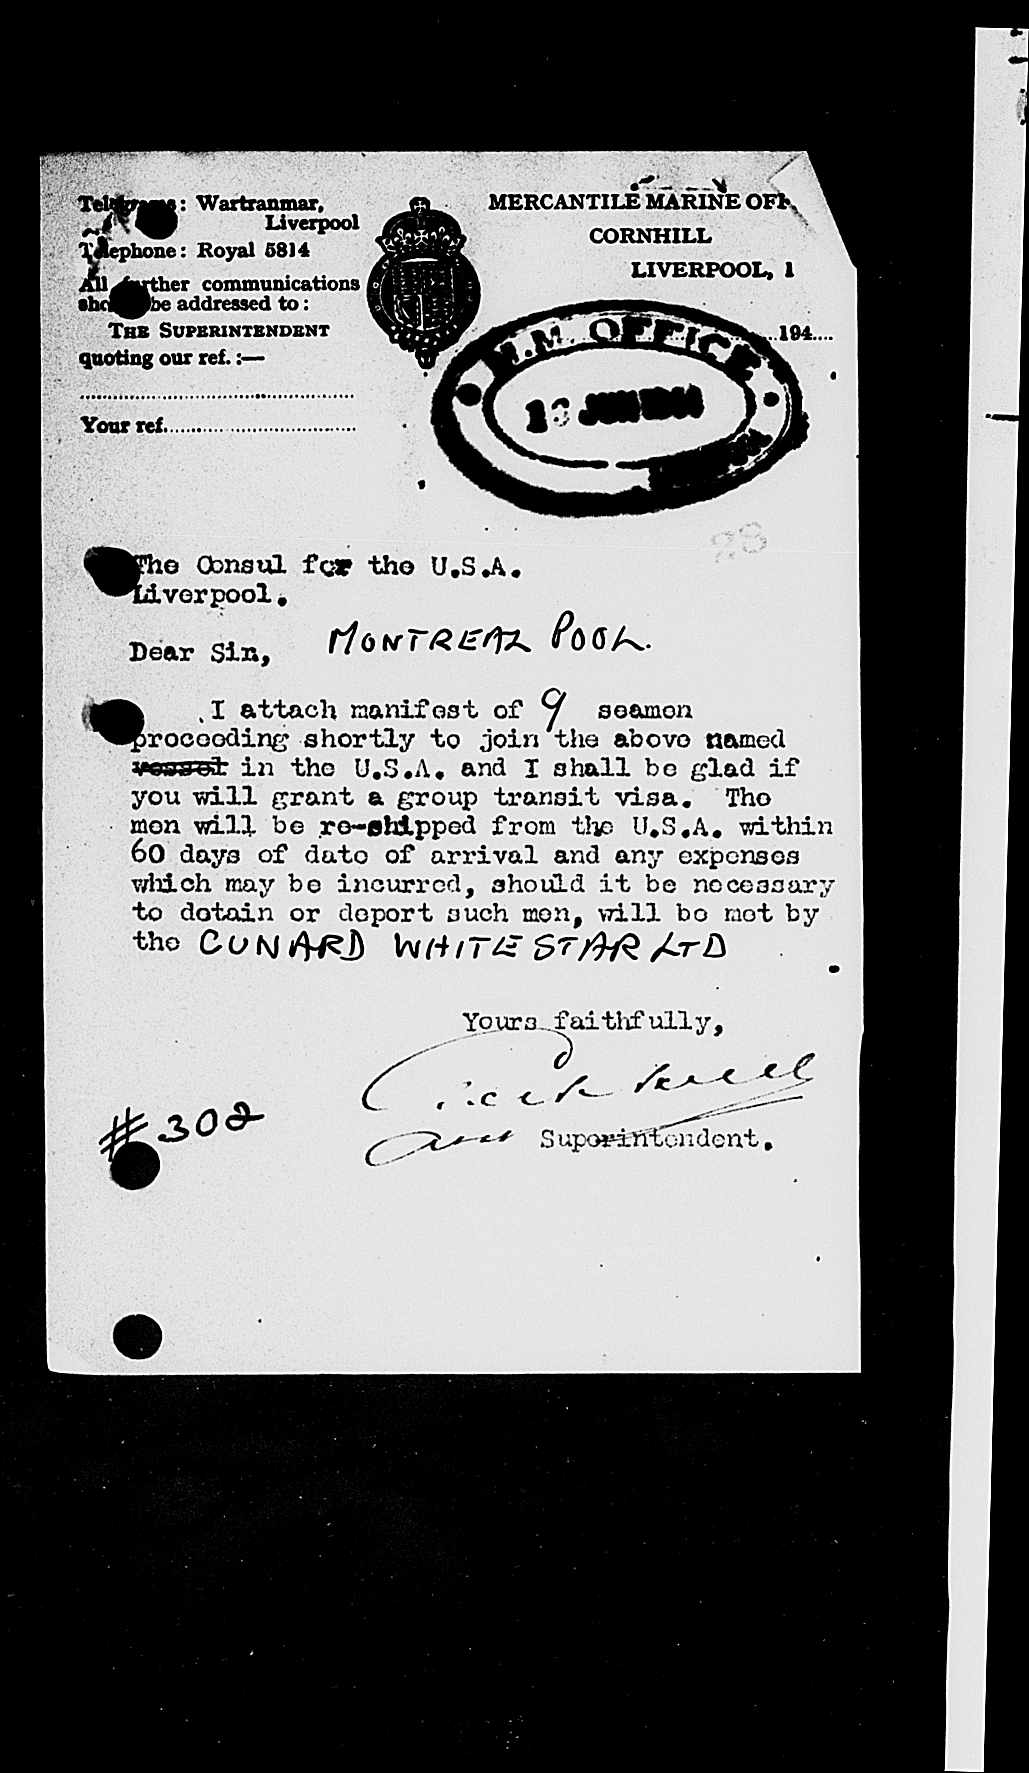 Telegrams: Wartranmar,
Liverpool
Telephone: Royal 5814
All further communications
should be addressed to:
THE SUPERINTENDENT
quoting our ref.:—
Your ref.
MERCANTILE MARINE OFF
CORNHILL
LIVERPOOL, 1
194
M.M. OFFICE
JUN
28
The Consul for the U.S.A.
Liverpool.
Dear Sir, MONTREAL POOL.
I attach manifest of 9 seamen
proceeding shortly to join the above named
vessel in the U.S.A. and I shall be glad if
you will grant a group transit visa. The
men will be re-shipped from the U.S.A. within
60 days of date of arrival and any expenses
which may be incurred, should it be necessary
to detain or deport such men, will be met by
the CUNARD WHITE STAR LTD
Yours faithfully,
Superintendent.
#302